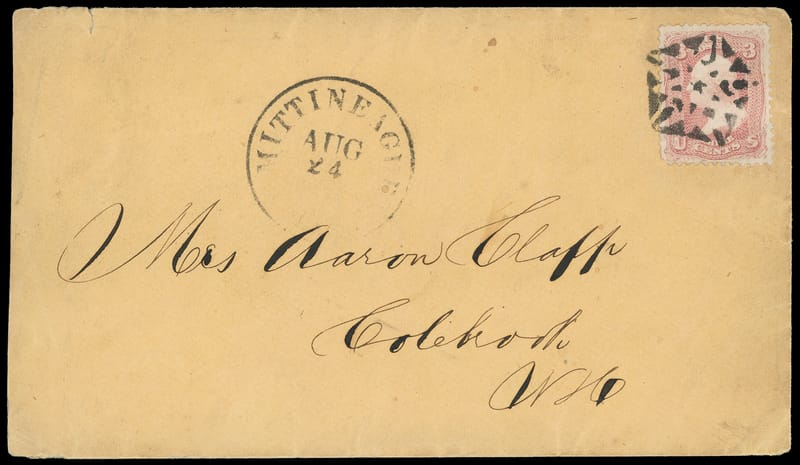 MITTINEAGUE
AUG
24
3 3
U S
CENTS
Mrs Aaron Clapp
Colebrook
N H